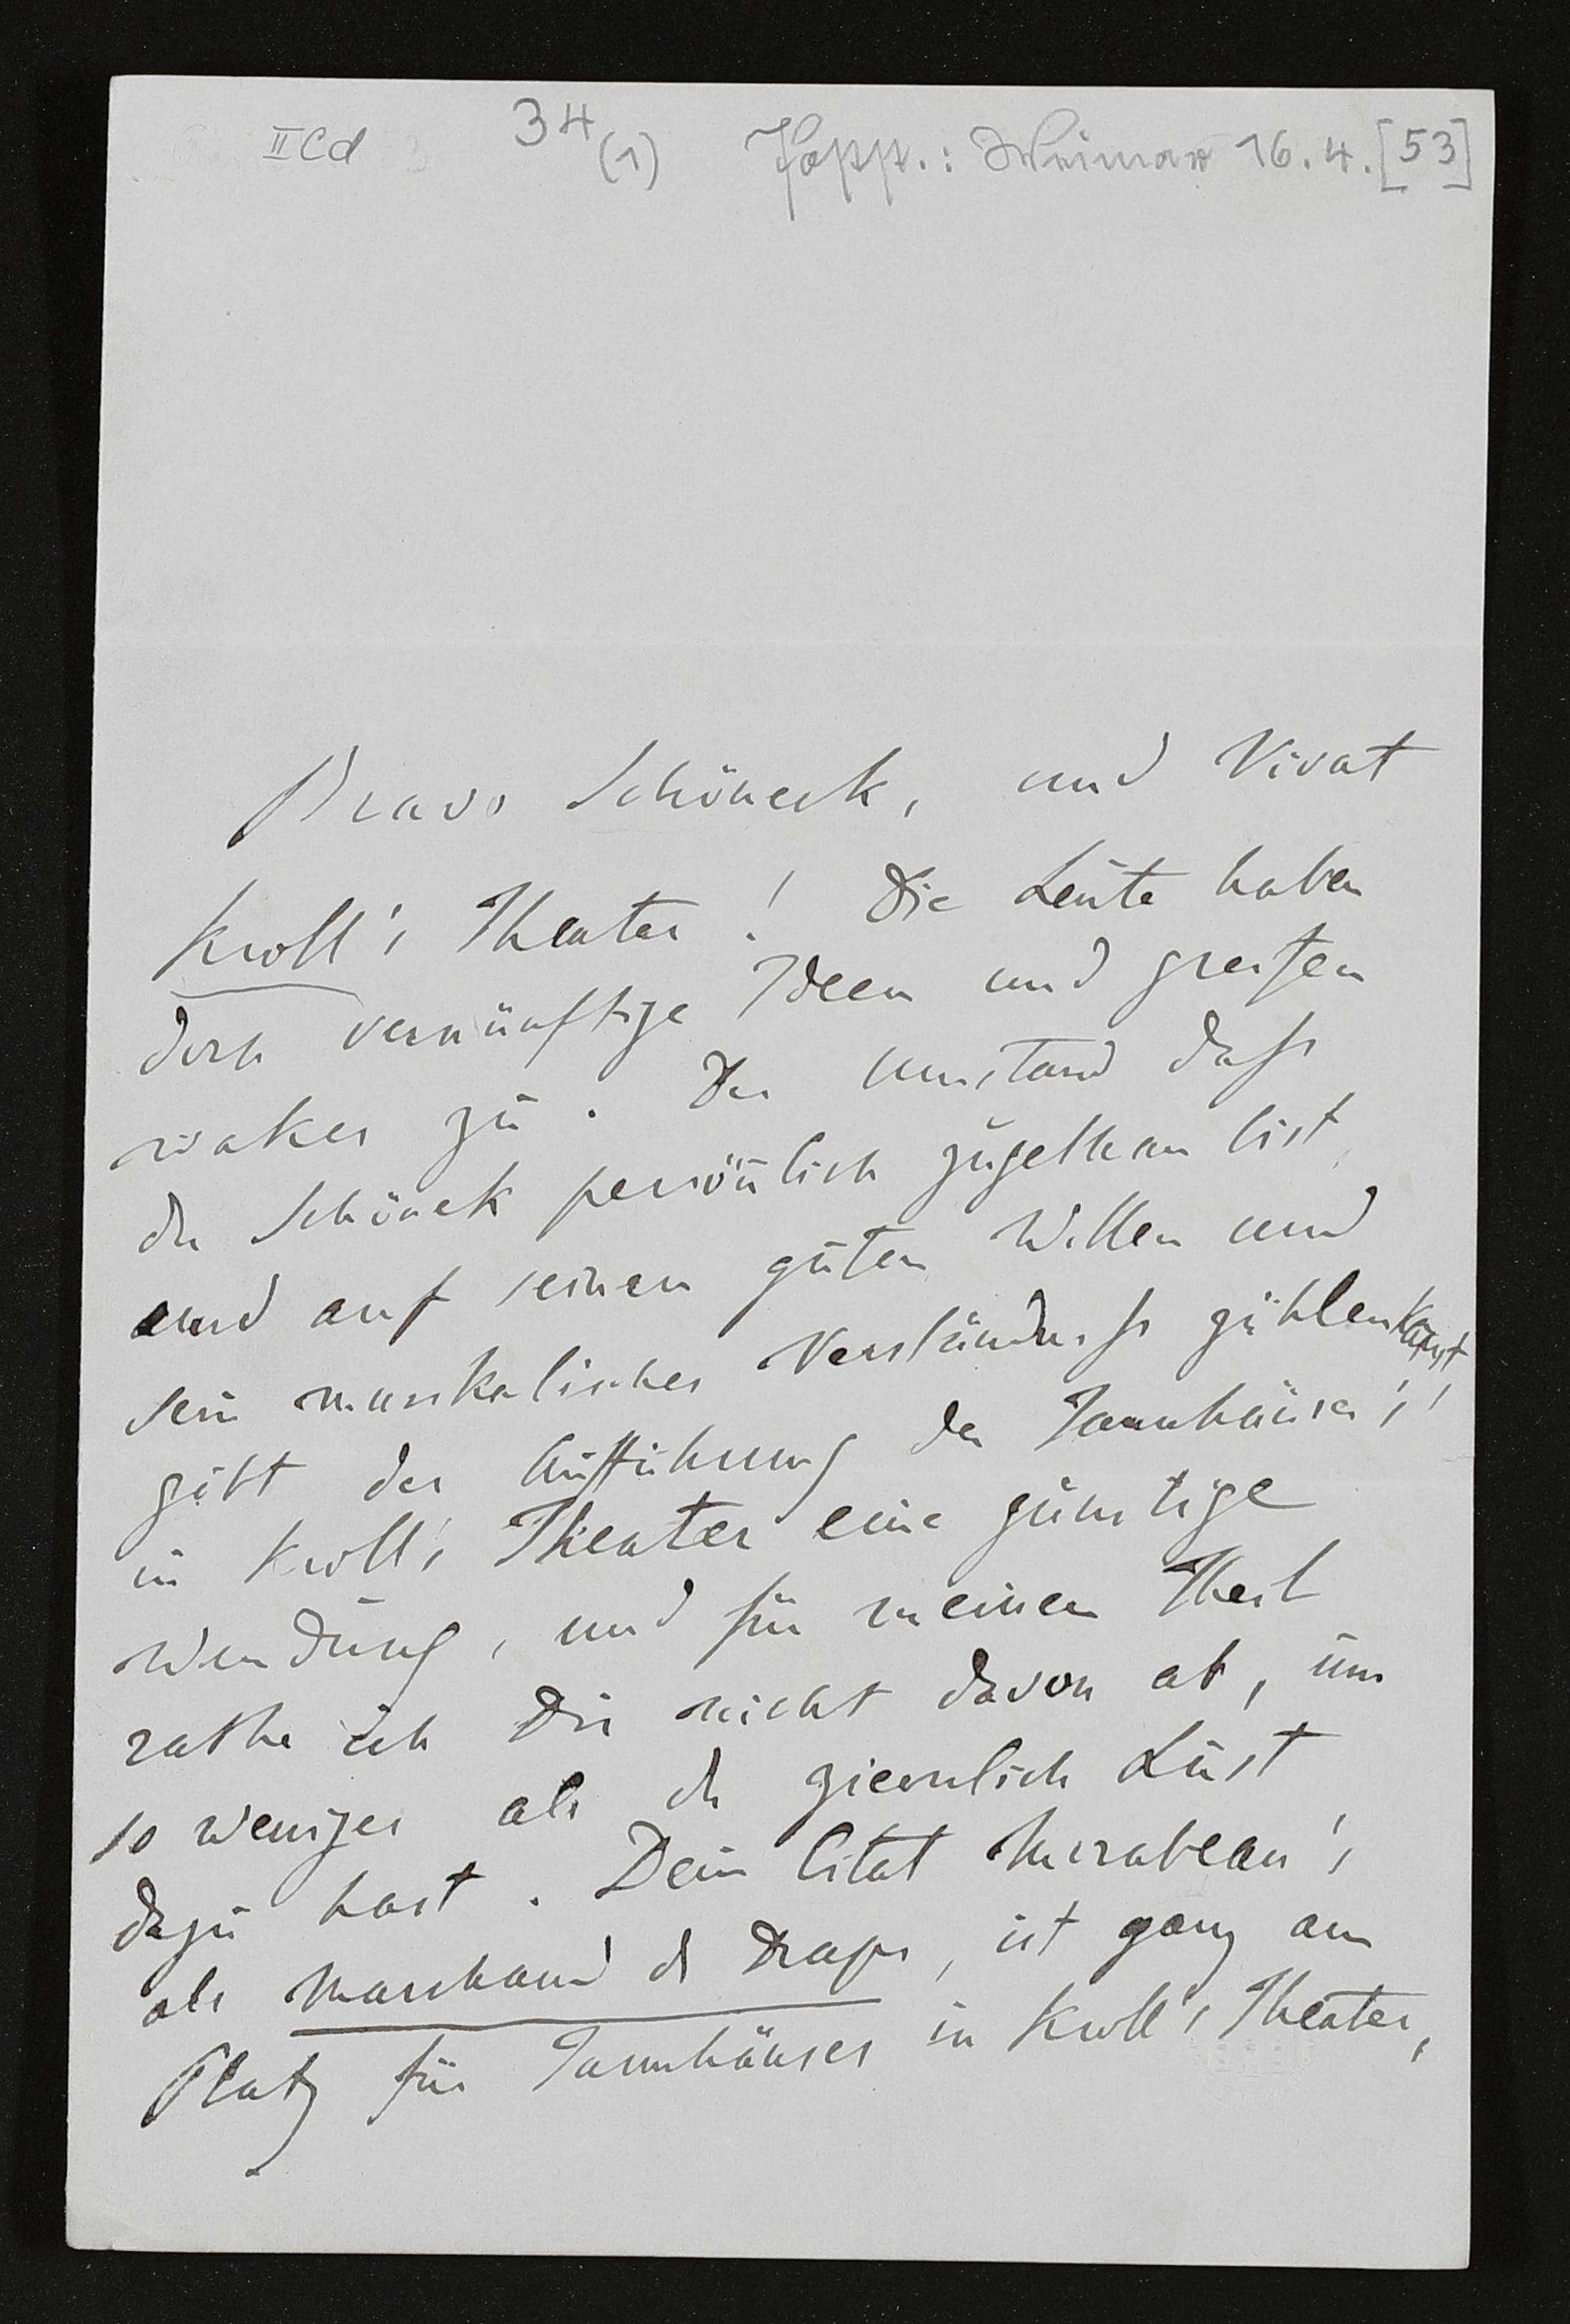 IICd 34 (1) Kopp.: Weimar 16. 4. [53]
Bravo Schöneck, und Vivat
Kroll's Theater! Die Leute haben
doch vernünftige Ideen und greifen
waker zu. Der Umstand dass
du Schöneck persönlich zugethan bist,
und auf seinen guten Willen und
sein musikalisches Verständniss zählen kannst
gibt der Aufführung des Tannhäuser's
in Kroll's Theater eine günstige
Wendung, und für meinen Theil
rathe ich Dir nicht davon ab, um
so weniger als du ziemlich Lust
dazu hast. Dein Citat Mirabeau's
als Marchand de Draps, ist ganz am
Platz für Tannhäuser in Kroll's Theater,